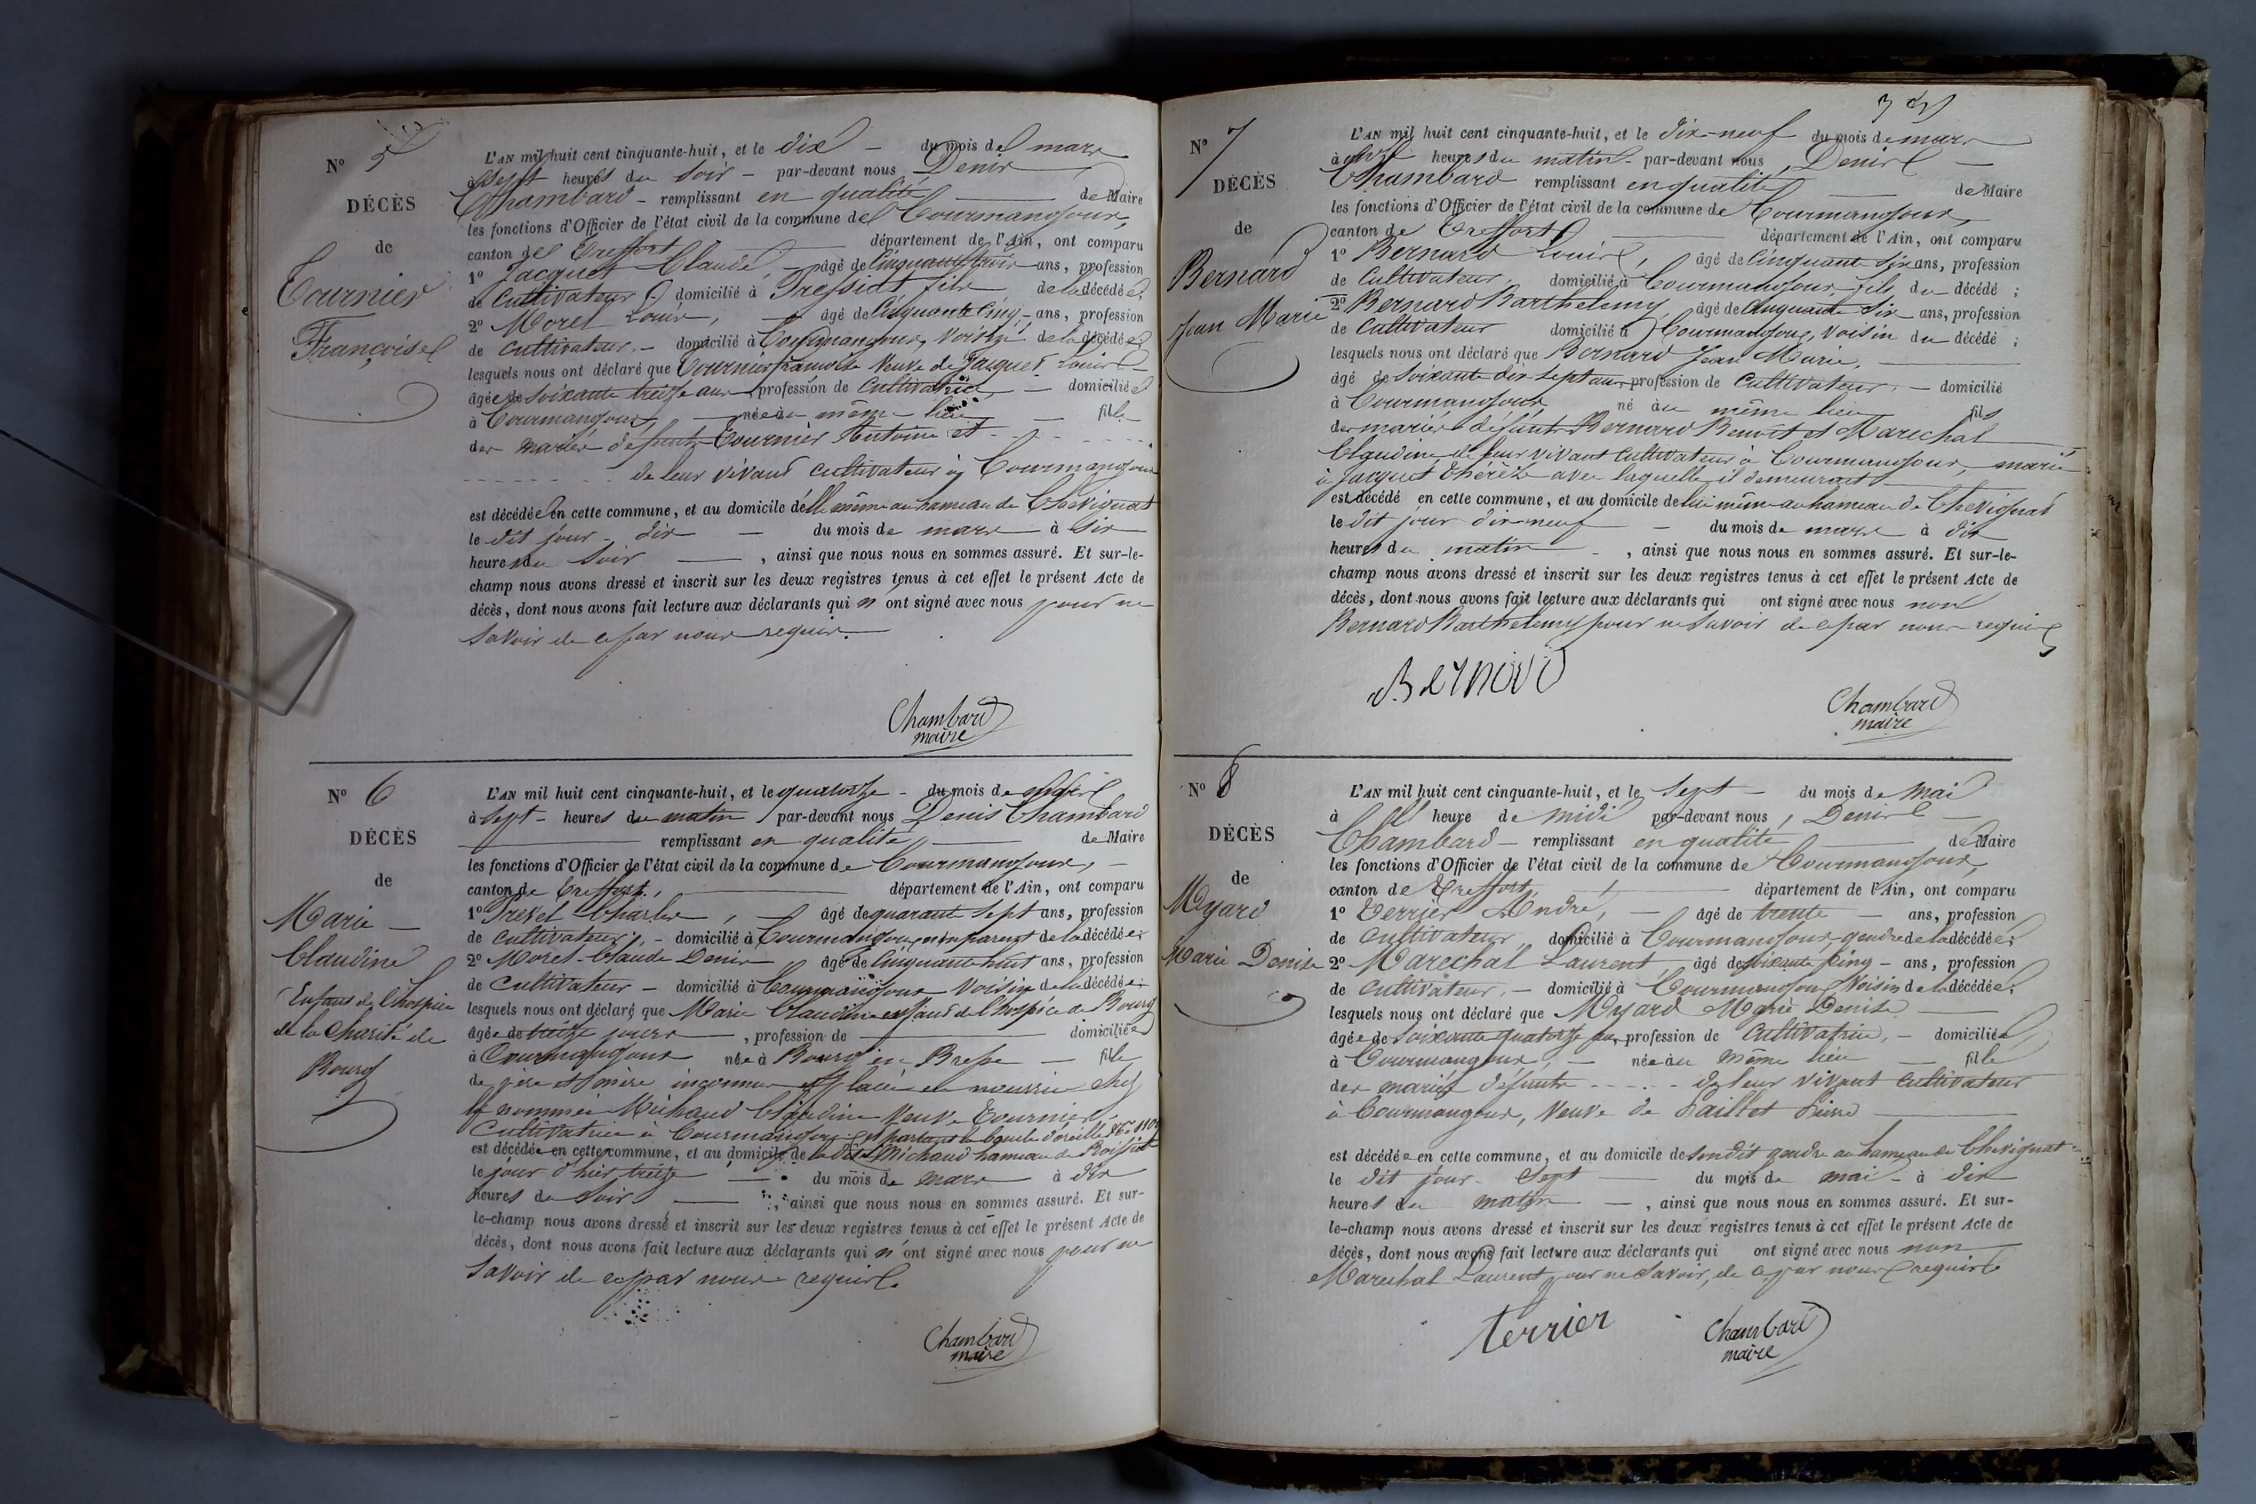 Nº 5
DÉCÈS
de
Tournier
Françoise
L'AN mil huit cent cinquante-huit, et le dix — du mois de mars
à sept heures du soir — par-devant nous Denis
Chambard — remplissant en qualité de Maire
les fonctions d'Officier de l'état civil de la commune de Courmangoux,
canton de Treffort département de l'Ain, ont comparu
1º Jacquet Claude, âgé de cinquante trois ans, profession
de cultivateur, domicilié à Pressiat fils de la décédée;
2º Morel Louis, âgé de cinquante cinq ans, profession
de cultivateur — domicilié à Courmangoux, voisin de la décédée;
lesquels nous ont déclaré que Tournier Françoise veuve de Jacquet Louis
âgée de soixante treize ans profession de cultivatrice — domiciliée
à Courmangoux née au même lieu fille
des mariés défunts Tournier Antoine et
de leur vivant cultivateur à Courmangoux
est décédée en cette commune, et au domicile d'elle même au hameau de Chevignat
le dit jour dix — du mois de mars à six
heures du soir , ainsi que nous nous en sommes assuré. Et sur-le-
champ nous avons dressé et inscrit sur les deux registres tenus à cet effet le présent Acte de
décès, dont nous avons fait lecture aux déclarants qui n'ont signé avec nous pour ne
savoir de ce par nous requis.
Chambard
maire
Nº 6
DÉCÈS
de
Marie —
Claudine
Enfant de l'hospice
de la Charité de
Bourg
L'AN mil huit cent cinquante-huit, et le quatorze — du mois de
à sept — heures du matin par-devant nous Denis Chambard
remplissant en qualité de Maire
les fonctions d'Officier de l'état civil de la commune de Courmangoux, —
canton de Treffort, département de l'Ain, ont comparu
1º Prevel Charles, âgé de quarante sept ans, profession
de cultivateur, — domicilié à Courmangoux non parent de la décédée;
2º Morel Claude Denis âgé de cinquante huit ans, profession
de cultivateur — domicilié à Courmangoux voisin de la décédée;
lesquels nous ont déclaré que Marie Claudine enfant de l'hospice de Bourg
âgée de treize jours , profession de domiciliée
à Courmangoux née à Bourg en Bresse — fille
de père et mère inconnus et placée en nourrice chez
la nommée Michaud Claudine veuve Tournier
cultivatrice à Courmangoux et portant la boucle d'oreille Nº
est décédée en cette commune, et au domicile de la dite Michaud hameau de Roissiat
le jour d'hier treize du mois de mars à dix
heures du soir , ainsi que nous nous en sommes assuré. Et sur-
le-champ nous avons dressé et inscrit sur les deux registres tenus à cet effet le présent Acte de
décès, dont nous avons fait lecture aux déclarants qui n'ont signé avec nous pour ne
savoir de ce par nous requis.
Chambard
maire
Nº 7
DÉCÈS
de
Bernard
Jean Marie
L'AN mil huit cent cinquante-huit, et le dix-neuf du mois de mars
à onze heures du matin — par-devant nous, Denis —
Chambard remplissant en qualité de Maire
les fonctions d'Officier de l'état civil de la commune de Courmangoux,
canton de Treffort département de l'Ain, ont comparu
1º Bernard Louis, âgé de cinquante six ans, profession
de cultivateur, domicilié à Courmangoux fils du décédé;
2º Bernard Barthelemy âgé de cinquante six ans, profession
de cultivateur domicilié à Courmangoux, voisin du décédé;
lesquels nous ont déclaré que Bernard Jean Marie,
âgé de soixante dix sept ans profession de cultivateur, — domicilié
à Courmangoux né au même lieu fils
des mariés défunts Bernard Benoit et Marechal
Claudine de leur vivant cultivateur à Courmangoux, marié
à Jacquet Thérèze avec laquelle il demeurait
est décédé en cette commune, et au domicile de lui même au hameau de Chevignat
le dit jour dix-neuf — du mois de mars à dix
heures du matin — , ainsi que nous nous en sommes assuré. Et sur-le-
champ nous avons dressé et inscrit sur les deux registres tenus à cet effet le présent Acte de
décès, dont nous avons fait lecture aux déclarants qui ont signé avec nous non
Bernard Barthelemy pour ne savoir de ce par nous requis
Bernard
Chambard
maire
Nº 8
DÉCÈS
de
Myard
Marie Denise
L'AN mil huit cent cinquante-huit, et le sept — du mois de mai
à l' heure de midi par-devant nous, Denis —
Chambard — remplissant en qualité de Maire
les fonctions d'Officier de l'état civil de la commune de Courmangoux,
canton de Treffort, département de l'Ain, ont comparu
1º Terrier André, — âgé de trente — ans, profession
de cultivateur, domicilié à Courmangoux gendre de la décédée;
2º Marechal Laurent âgé de soixante cinq — ans, profession
de cultivateur, — domicilié à Courmangoux voisin de la décédée;
lesquels nous ont déclaré que Myard Marie Denise
âgée de soixante quatorze ans, profession de cultivatrice, — domiciliée
à Courmangoux, — née au même lieu — fille
des mariés défunts de leur vivant cultivateur
à Courmangoux, veuve de Paillet Pierre
est décédée en cette commune, et au domicile de son dit gendre au hameau de Chevignat
le dit jour sept du mois de mai — à dix
heures du matin — , ainsi que nous nous en sommes assuré. Et sur-
le-champ nous avons dressé et inscrit sur les deux registres tenus à cet effet le présent Acte de
décès, dont nous avons fait lecture aux déclarants qui ont signé avec nous non
Marechal Laurent pour ne savoir, de ce par nous requis
terrier
Chambard
maire